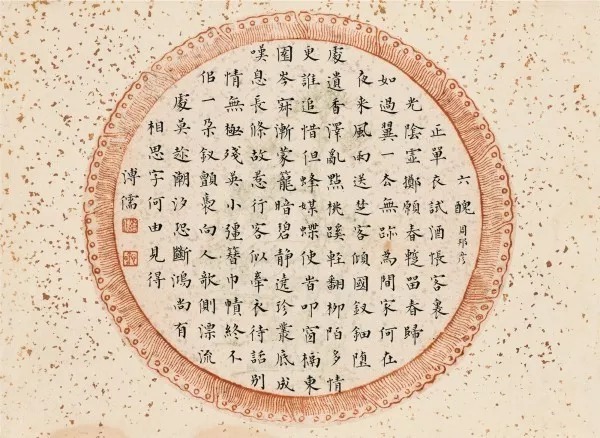 六醜 周邦彦
正單衣試酒悵客裏
光陰虛擲願春暫留春歸
如過翼一去無跡為問家何在
夜來風雨送楚客傾國釵鈿墮
處遺香澤亂點桃蹊輕翻柳陌多情
更誰追惜但蜂媒蝶使時叩窗槅東
園岑寂漸蒙籠暗碧靜遶珍叢底成
嘆息長條故惹行客似牽衣待話別
情無極殘英小強簪巾幘終不
似一朶釵顫裊向人欹側漂流
處莫趁潮汐恐斷鴻尚有
相思字何由見得
溥儒